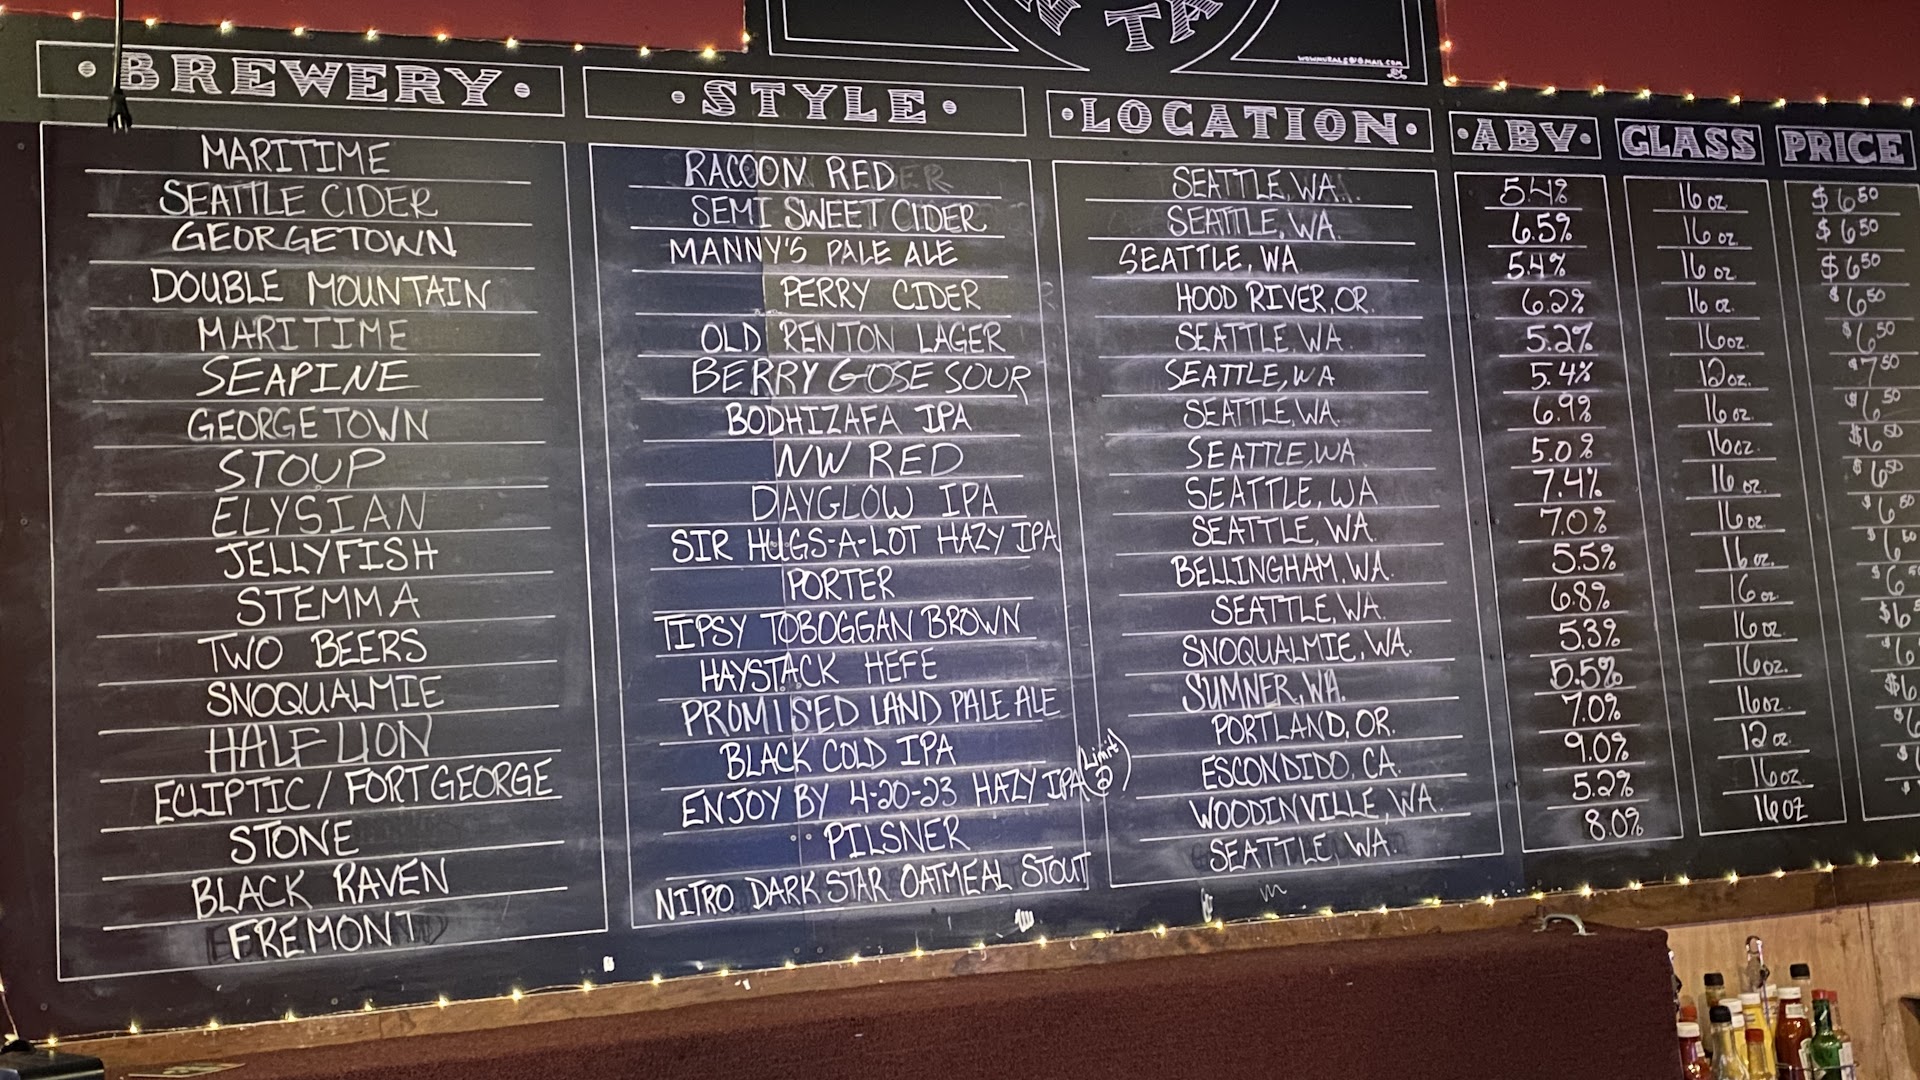 N TA
wswmurals@gmail.com
BREWERY STYLE LOCATION ABV GLASS PRICE
MARITIME RACOON RED SEATTLE, WA. 5.4% 16 oz. $6.50
SEATTLE CIDER SEMI SWEET CIDER SEATTLE, WA. 6.5% 16 oz. $6.50
GEORGETOWN MANNY'S PALE ALE SEATTLE, WA 5.4% 16 oz. $6.50
DOUBLE MOUNTAIN PERRY CIDER HOOD RIVER, OR. 6.2% 16 oz. $6.50
MARITIME OLD RENTON LAGER SEATTLE, WA. 5.2% 16oz. $6.50
SEAPINE BERRY GOSE SOUR SEATTLE, WA 5.4% 12oz. $7.50
GEORGETOWN BODHIZAFA IPA SEATTLE, WA. 6.9% 16 oz. $6.50
STOUP NW RED SEATTLE, WA. 5.0% 16oz. $6.50
ELYSIAN DAYGLOW IPA SEATTLE, WA 7.4% 16 oz. $6.50
JELLYFISH SIR HUGS-A-LOT HAZY IPA SEATTLE, WA. 7.0% 16 oz. $6.50
STEMMA PORTER BELLINGHAM, WA. 5.5% 16 oz. $6.50
TWO BEERS TIPSY TOBOGGAN BROWN SEATTLE, WA. 6.8% 16 oz. $6.5
SNOQUALMIE HAYSTACK HEFE SNOQUALMIE, WA. 5.3% 16 oz. $6.5
HALF LION PROMISED LAND PALE ALE SUMNER, WA. 5.5% 16oz. $6
ECLIPTIC / FORT GEORGE BLACK COLD IPA PORTLAND, OR. 7.0% 16oz. $6
STONE ENJOY BY 4-20-23 HAZY IPA (Limit 2) ESCONDIDO, CA. 9.0% 12 oz. $6
BLACK RAVEN PILSNER WOODINVILLE, WA. 5.2% 16oz. $
FREMONT NITRO DARK STAR OATMEAL STOUT SEATTLE WA. 8.0% 16oz $